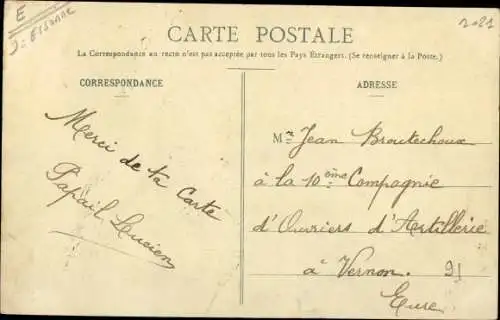 E
D. ESSONNE
2021
CARTE POSTALE
La Correspondance au recto n'est pas acceptée par tous les Pays Etrangers. (Se renseigner à la Poste.)
CORRESPONDANCE
ADRESSE
Merci de ta Carte
Papail Lucien
Mr Jean Broutechoux
à la 10ème Compagnie
d'Ouvriers d'Artillerie
à Vernon. 91
Eure.